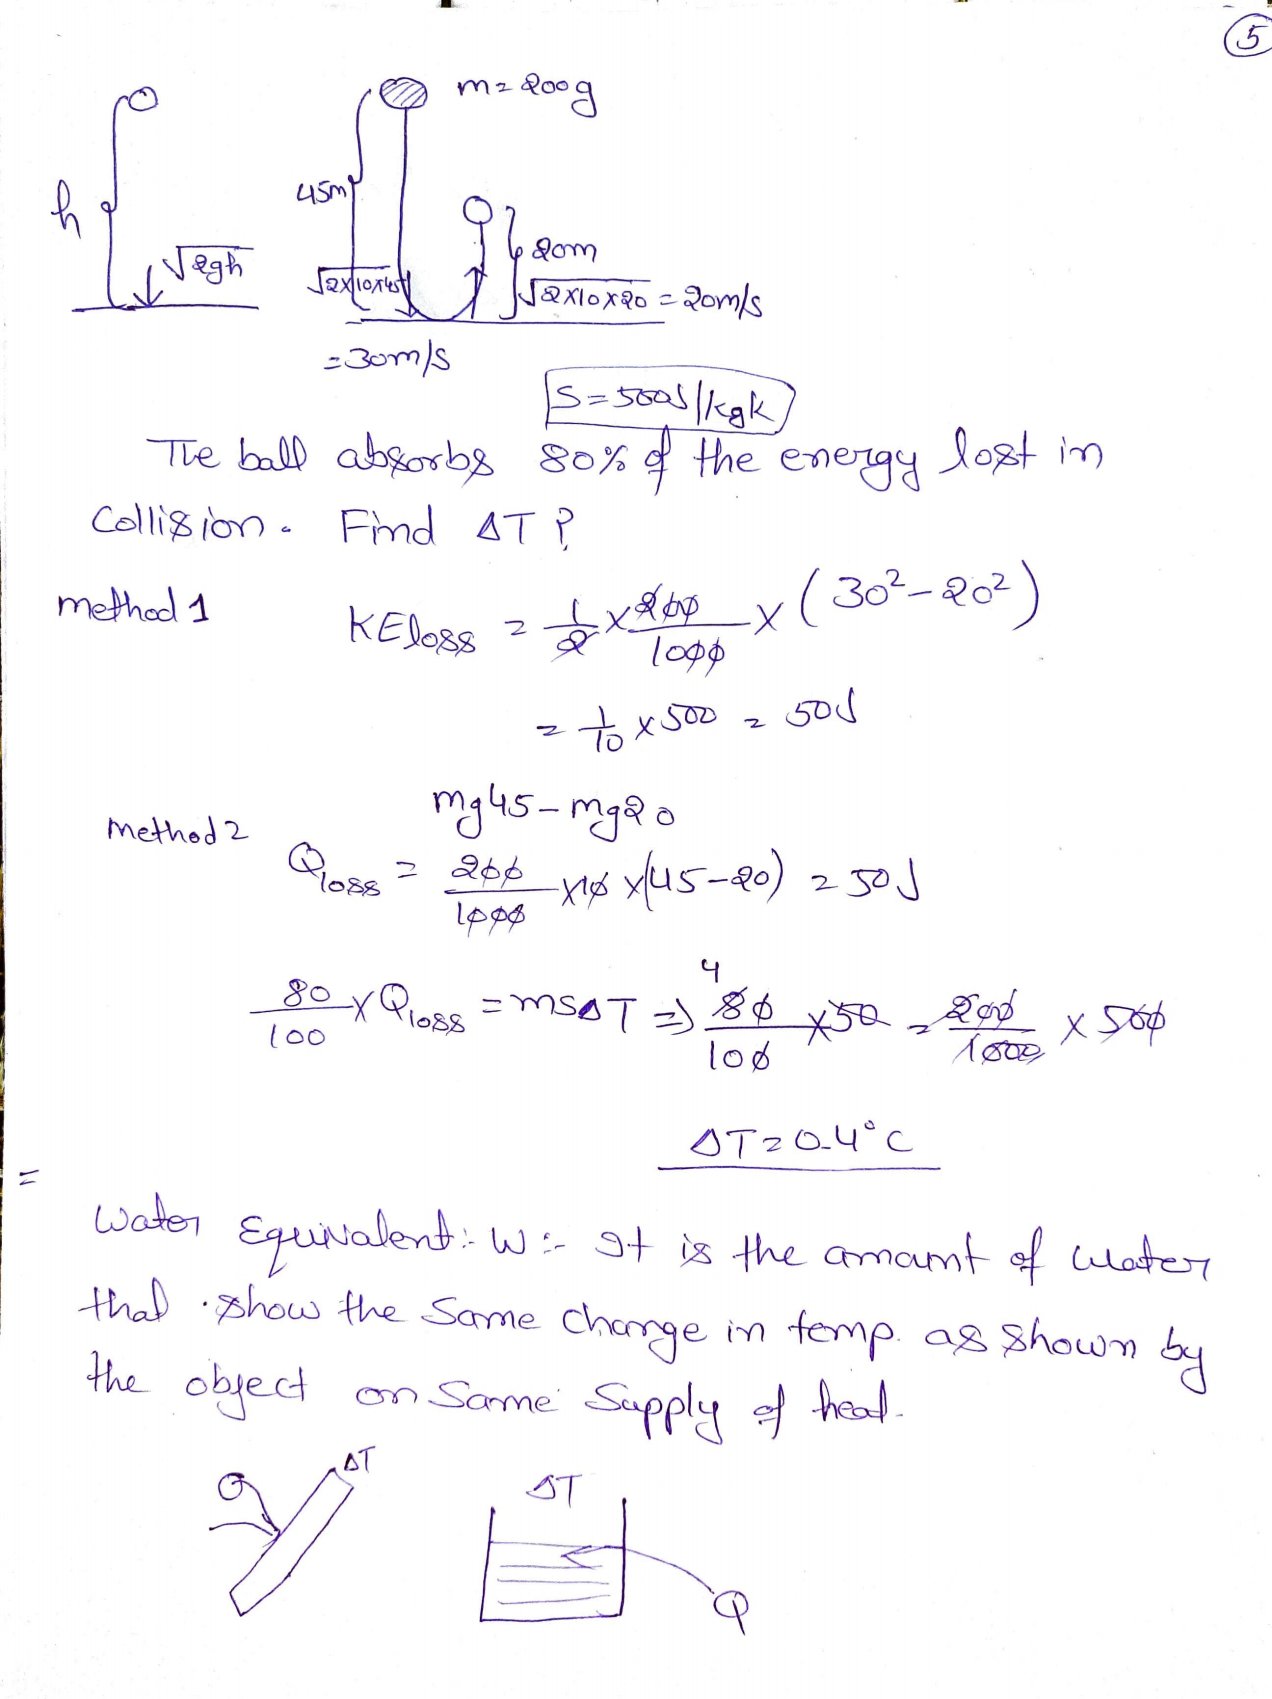 5
m = 200g
h
45m
√2gh
20m
√2×10×45
√2×10×20 = 20m/s
= 30m/s
S = 500J/kgk
The ball absorbs 80% of the energy lost in
Collision. Find ΔT?
method 1
KEloss = 1/2 × 200/1000 × (30² - 20²)
= 1/10 × 500 = 50J
mg45 - mg20
method 2
Qloss = 200/1000 × 10 × (45-20) = 50J
4
80/100 × Qloss = msΔT ⇒ 80/100 × 50 = 200/1000 × 500
ΔT = 0.4°C
=
Water Equivalent :- W :- It is the amount of water
that show the Same Change in temp. as shown by
the object on Same Supply of heat.
Q ΔT
ΔT
Q